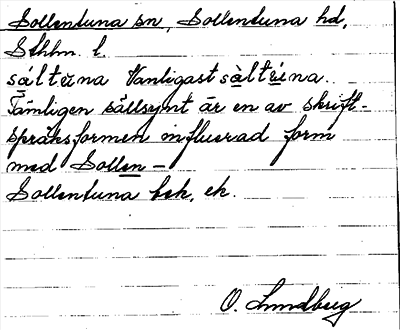 Sollentuna sn, Sollentuna hd,
Sthlm. l.
sáltùna Vanligast sàltúna.
Tämligen sällsynt är en av skrift-
språksformen influerad form
med Sollen-
Sollentuna bok. ek.
O. Lundberg